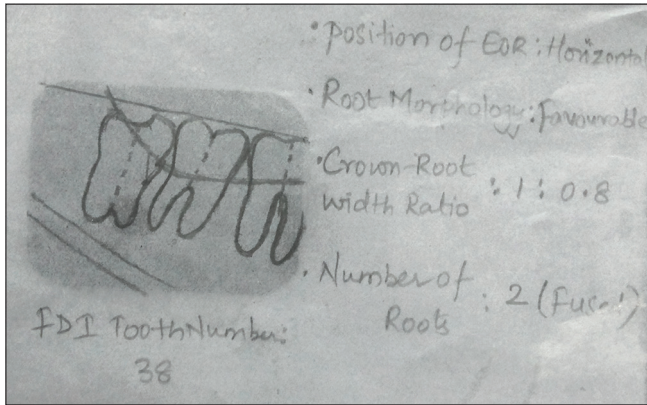 • Position of EOR : Horizontal
• Root Morphology : Favourable
• Crown-Root
width Ratio : 1 : 0.8
• Number of
Roots : 2 (Fused)
FDI Tooth Number:
38